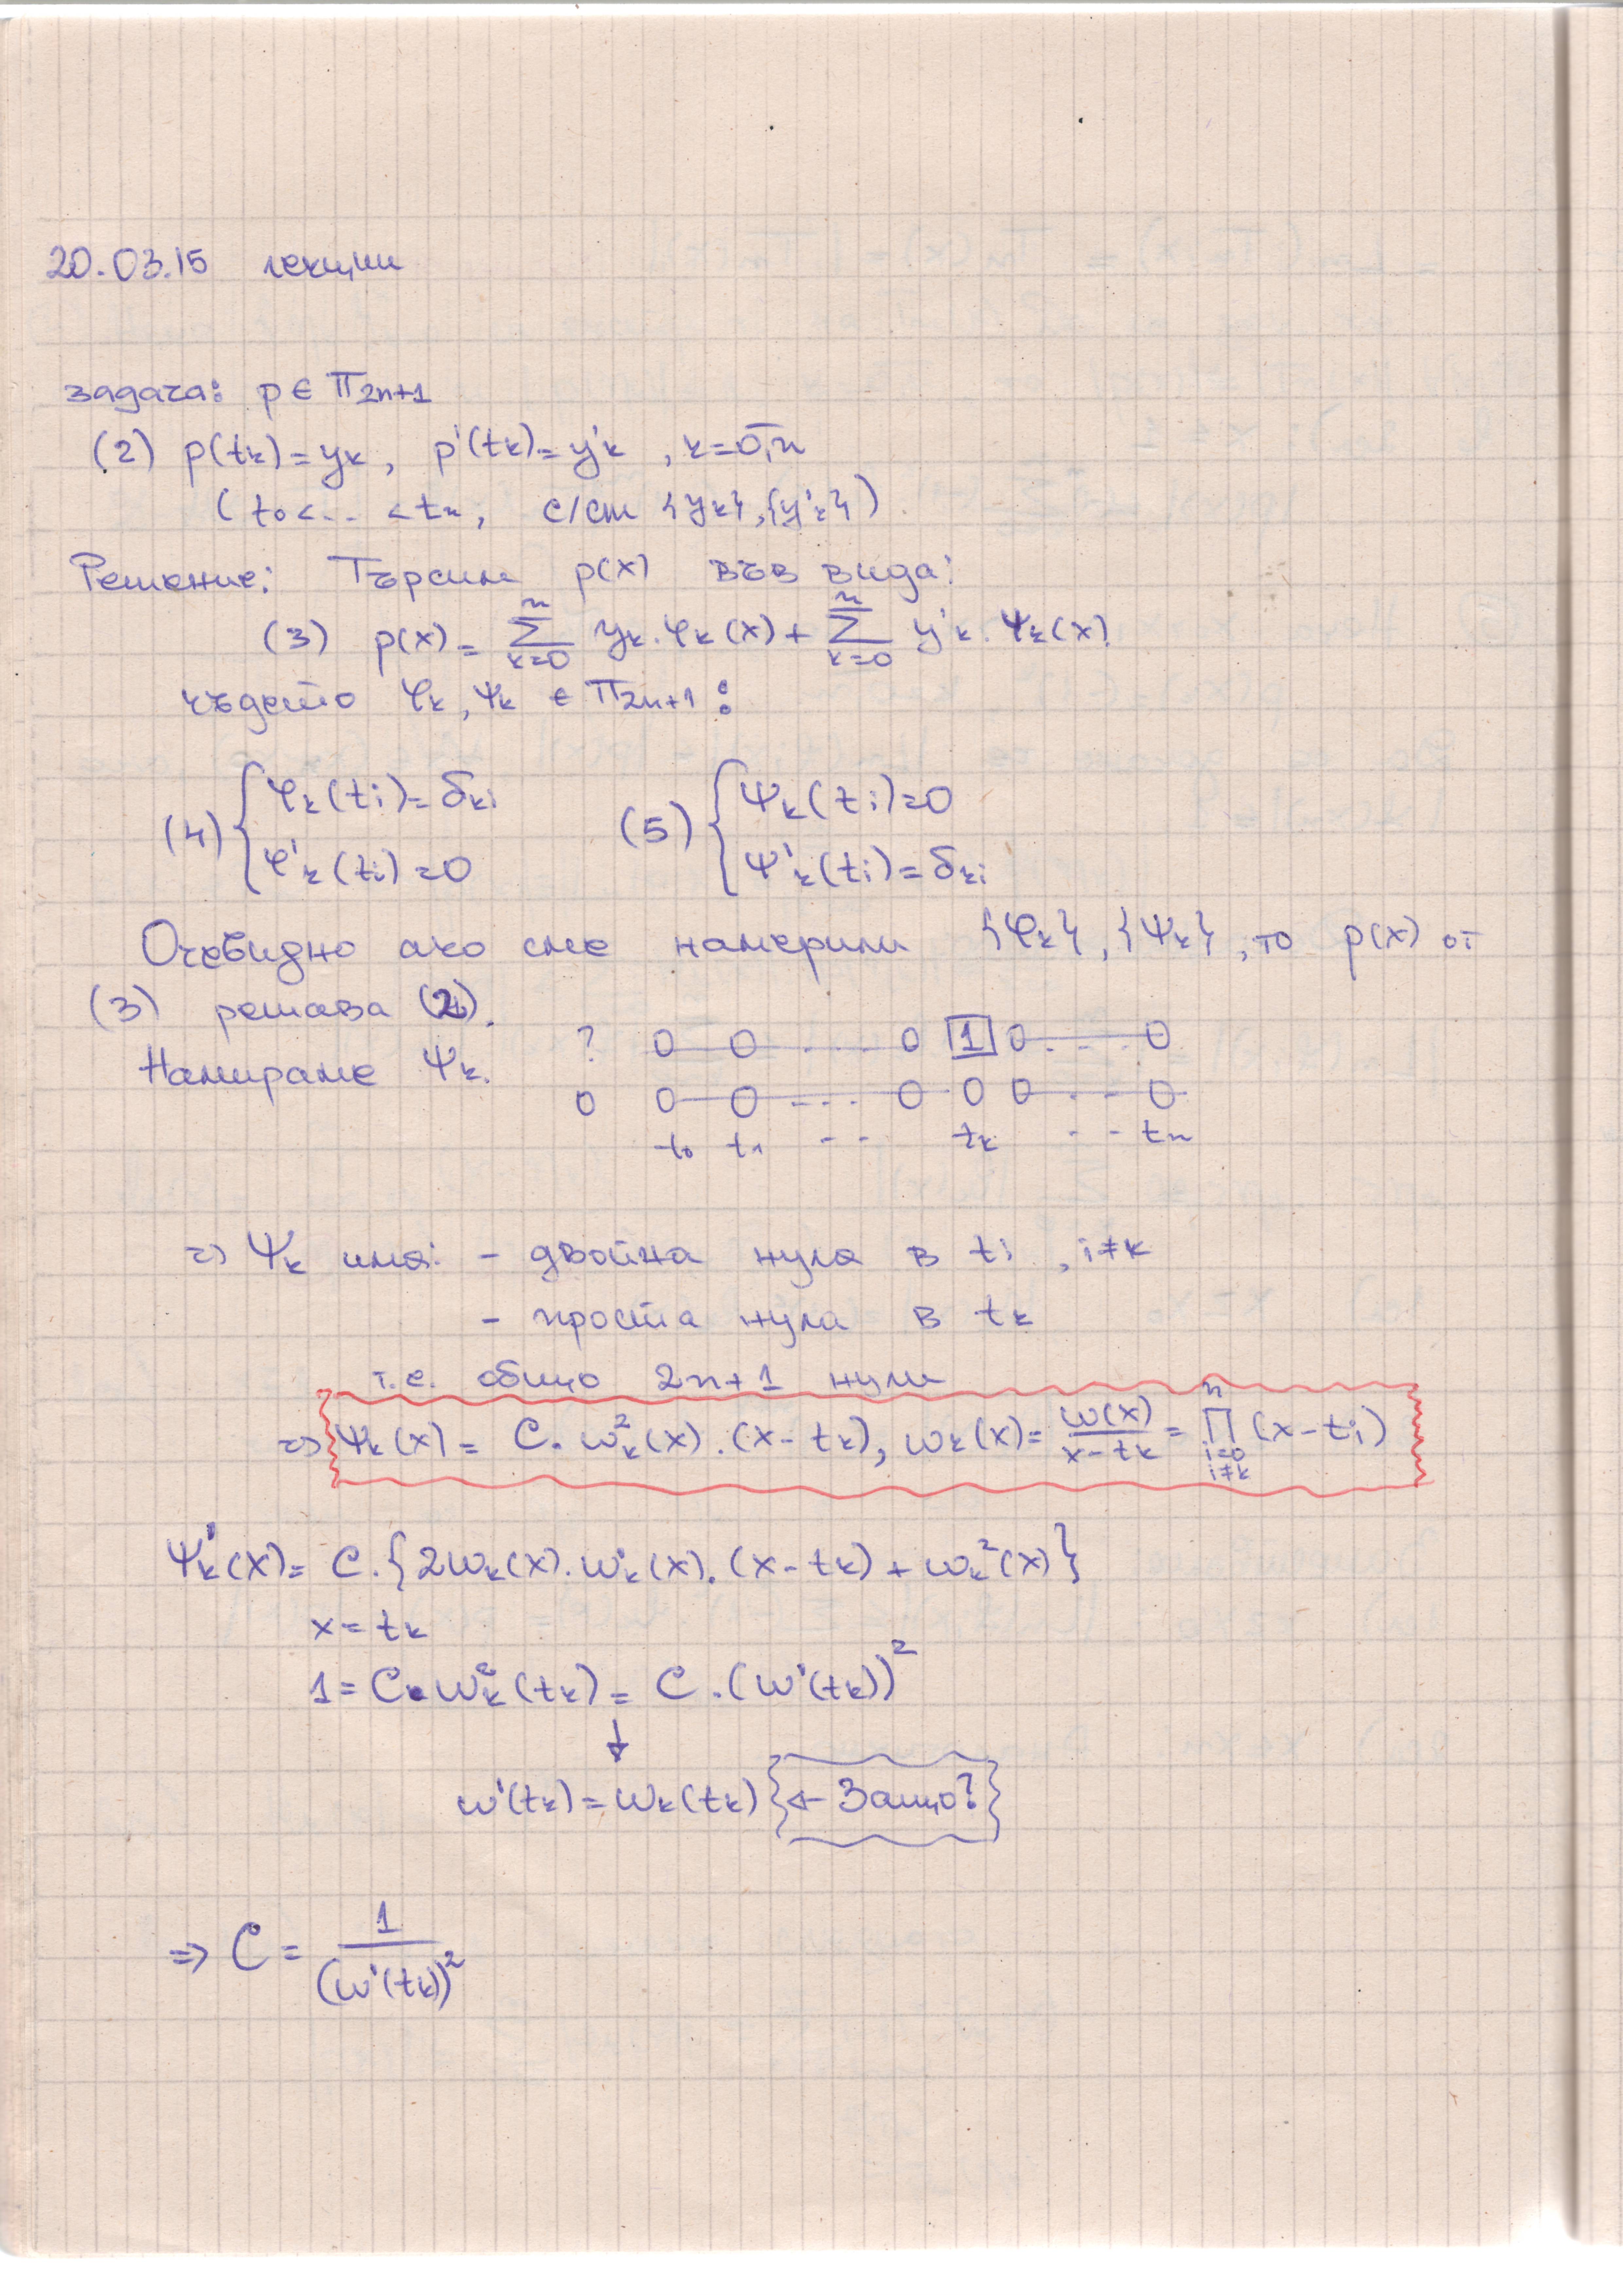 20.03.15 лекции
Задача: p ∈ π₂ₙ₊₁
(2) p(tₖ) = yₖ, p'(tₖ) = y'ₖ, k = 0,n̅
(t₀ < ... < tₙ, с/ст {yₖ}, {y'ₖ})
Решение: Търсим p(x) във вида:
(3) p(x) = ∑ₖ₌₀ⁿ yₖ.φₖ(x) + ∑ₖ₌₀ⁿ y'ₖ.ψₖ(x)
където φₖ, ψₖ ∈ π₂ₙ₊₁:
(4) { φₖ(tᵢ) = δₖᵢ (5) { ψₖ(tᵢ) = 0
φ'ₖ(tᵢ) = 0 ψ'ₖ(tᵢ) = δₖᵢ
Очевидно ако сме намерили {φₖ}, {ψₖ}, то p(x) от
(3) решава (2).
? 0 0 .... 0 1 0 ... 0
Намираме ψₖ.
0 0 0 --... 0 0 0 - - 0
t₀ t₁ -- tₖ -- tₙ
=> ψₖ има: - двойна нула в tᵢ, i≠k
- проста нула в tₖ
т.е. общо 2n+1 нули
=> ψₖ(x) = C.ωₖ²(x).(x-tₖ), ωₖ(x) = ω(x)/(x-tₖ) = ∏ᵢ₌₀,ᵢ≠ₖⁿ (x-tᵢ)
ψₖ'(x) = C.{2ωₖ(x).ωₖ'(x).(x-tₖ) + ωₖ²(x)}
x = tₖ
1 = C.ωₖ²(tₖ) = C.(ω'(tₖ))²
↓
ω'(tₖ) = ωₖ(tₖ) ← Защо?
=> C = 1/(ω'(tₖ))²